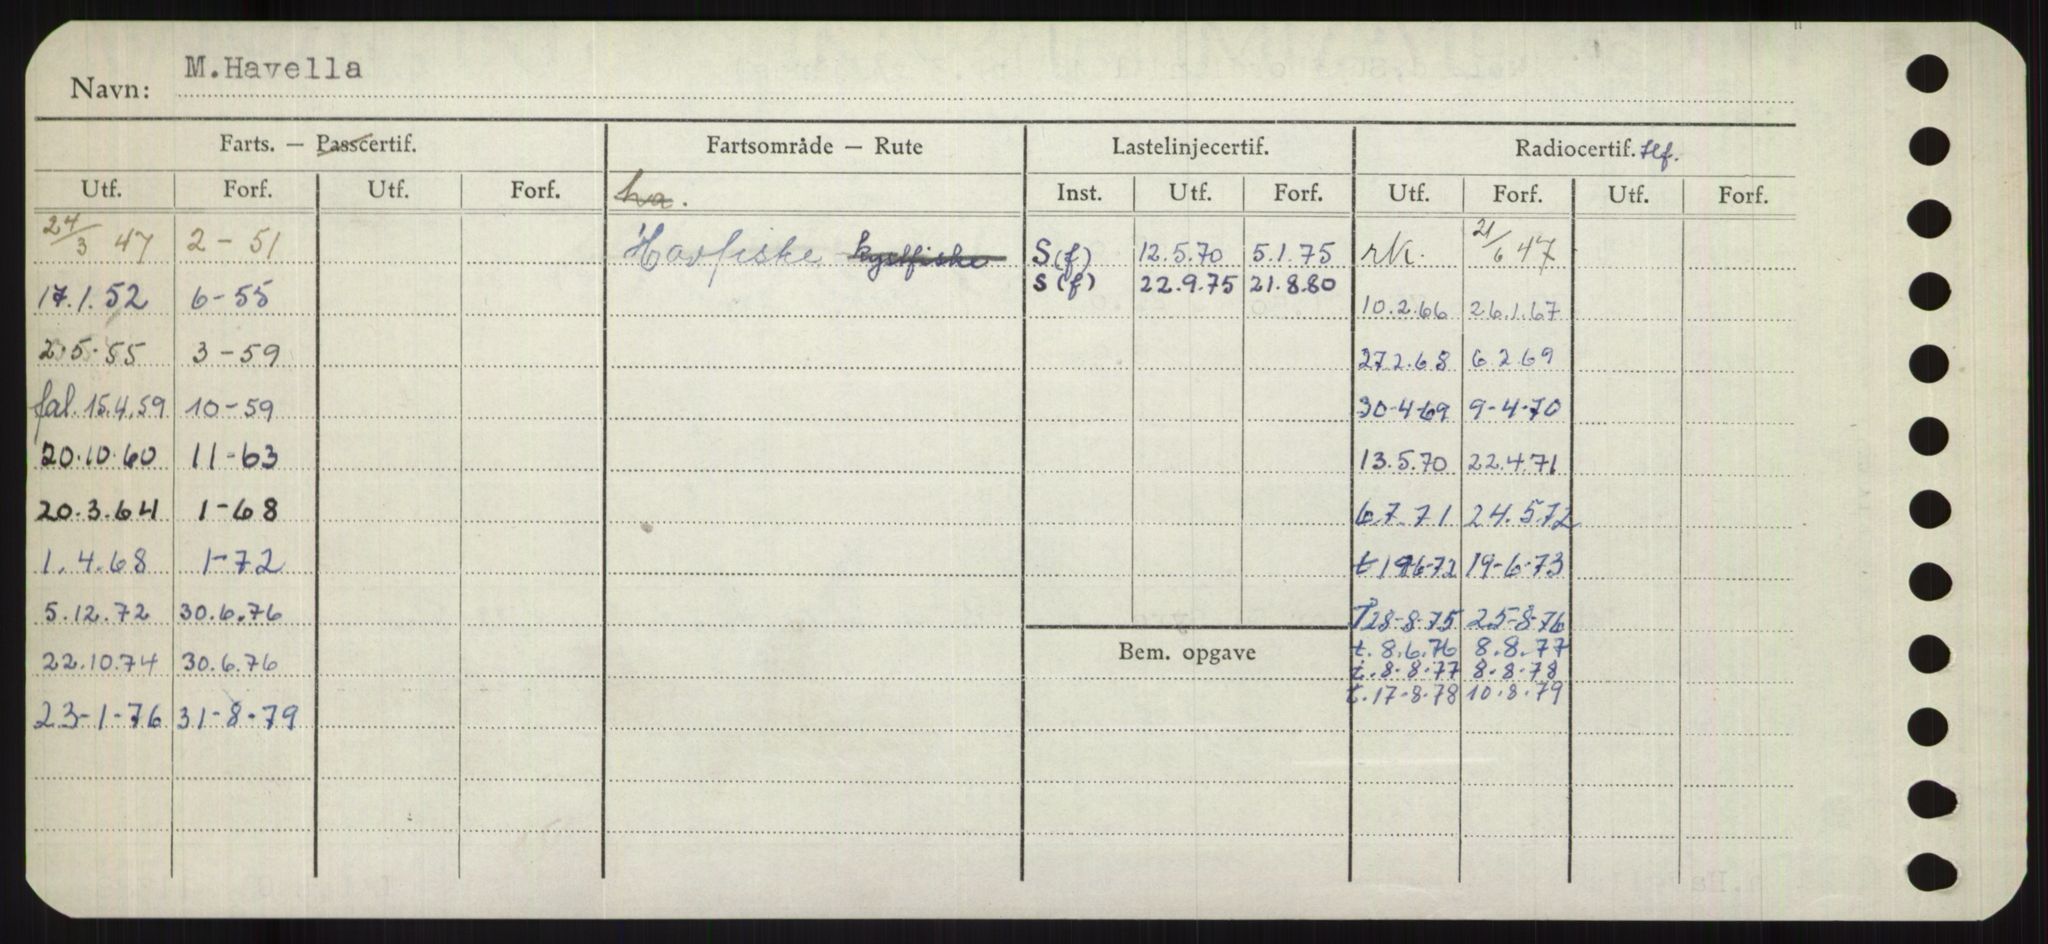 Navn: M.Havella
Farts. — Passcertif. Fartsområde — Rute Lastelinjecertif. Radiocertif. tlf.
Utf. Forf. Utf. Forf. ha. Inst. Utf. Forf. Utf. Forf. Utf. Forf.
24/3 47 2-51 Havfiske kystfiske S(f) 12.5.70 5.1.75 rk. 21/6 47
S(f) 22.9.75 21.8.80
17.1.52 6-55 10.2.66 26.1.67
2.5.55 3-59 27.2.68 6.2.69
fal. 15.4.59 10-59 30-4-69 9-4-70
20.10.60 11-63 13.5.70 22.4.71
20.3.64 1-68 6.7.71 24.5.72
1.4.68 1-72 t 19-6-72 19-6-73
5.12.72 30.6.76 T28-8-75 25-8-76
22.10.74 30.6.76 Bem. opgave t. 8.6.76 8.8.77
t. 8.8.77 8.8.78
23-1-76 31-8-79 t. 17-8-78 10.8.79